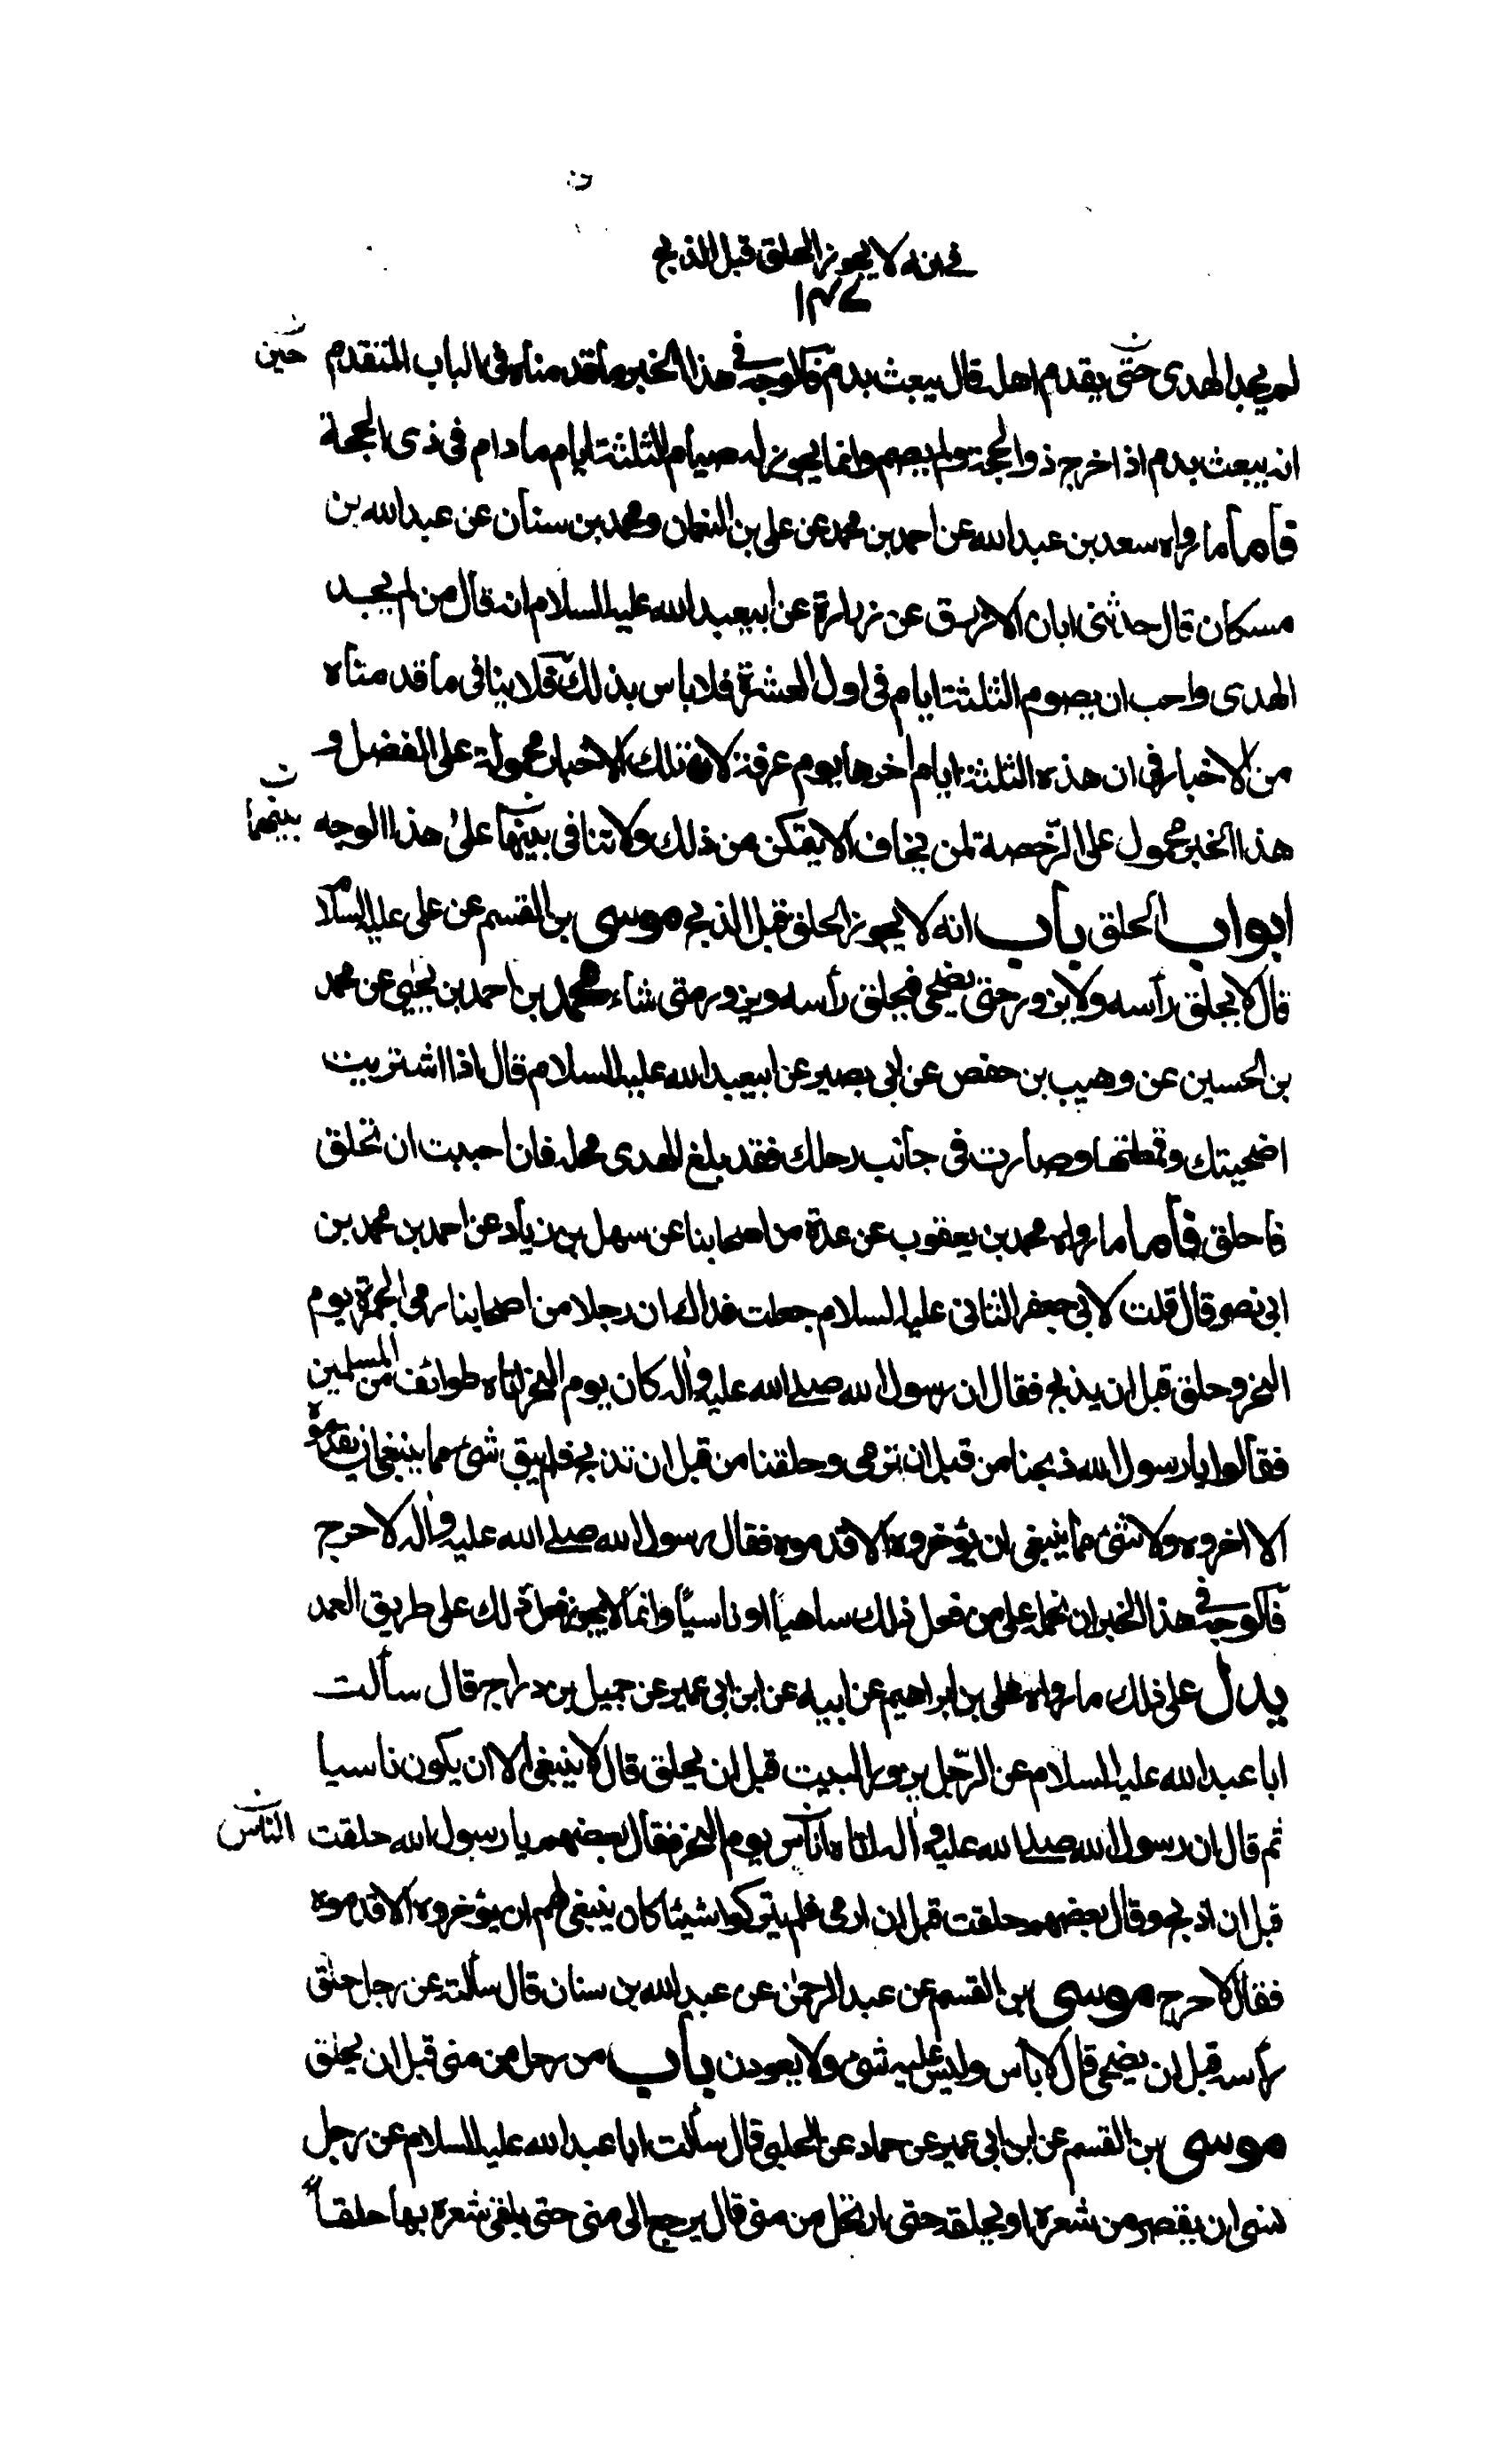 في انه لا يجوز الحلق قبل الذبح
١٣٧
لم يجد الهدى حتى يقدم اهله قال يبعث بدم فالوجه في هذا الخبر ما قدمناه فى الباب المتقدم
حين
انه يبعث بدم اذا خرج ذو الحجة ولم يصم وانما يجوز له صيام الثلثة ايام ما دام فى ذى الحجة
فأما ما رواه سعد بن عبد الله عن احمد بن محمد عن على بن النعمان ومحمد بن سنان عن عبد الله بن
مسكان قال حدثنى ابان الازرق عن زرارة عن ابيعبد الله عليه السلام انه قال من لم يجد
الهدى واحب ان يصوم الثلثة ايام فى اول العشرة فلا باس بذلك فلا ينافى ما قدمناه
من الاخبار فى ان هذه الثلثة ايام اخرها يوم عرفة لان تلك الاخبار محمولة على الفضل و
هذا الخبر محمول على الرخصة لمن يخاف الا يتمكن من ذلك ولا تنافى بينها على هذا الوجه
بينهما
ابواب الحلق باب انه لا يجوز الحلق قبل الذبح موسى بن القسم عن على عليه السلام
قال لا يحلق رأسه ولا يزور حتى يضحى فيحلق رأسه ويزور متى شاء محمد بن احمد بن يحيى عن محمد
بن الحسين عن وهيب بن حفص عن ابى بصير عن ابيعبد الله عليه السلام قال اذا اشتريت
اضحيتك وقمطتها وصارت فى جانب رحلك فقد بلغ الهدى محله فان احببت ان تحلق
فاحلق فأما ما رواه محمد بن يعقوب عن عدة من اصحابنا عن سهل بن زياد عن احمد بن محمد بن
ابى نصر قال قلت لابى جعفر الثانى عليه السلام جعلت فداك ان رجلا من اصحابنا رمى الجمرة يوم
النحر وحلق قبل ان يذبح فقال ان رسول الله صلى الله عليه وآله كان يوم النحر اتاه طوائف من المسلمين
فقالوا يا رسول الله ذبحنا من قبل ان نرمى وحلقنا من قبل ان نذبح فلم يبق شئ مما ينبغى ان يقدموه
الا اخروه ولا شئ مما ينبغى ان يؤخروه الا قدموه فقال رسول الله صلى الله عليه وآله لا حرج
فالوجه في هذا الخبر ان نحمله على من فعل ذلك ساهيا او ناسيا وانما لا يجوز فعل ذلك على طريق العمد
يدل على ذلك ما رواه على بن ابراهيم عن ابيه عن ابن ابى عمير عن جميل بن دراج قال سألت
ابا عبد الله عليه السلام عن الرجل يزور البيت قبل ان يحلق قال لا ينبغى الا ان يكون ناسيا
ثم قال ان رسول الله صلى الله عليه وآله اتاه اناس يوم النحر فقال بعضهم يا رسول الله حلقت
الناس
قبل ان اذبح وقال بعضهم حلقت قبل ان ارمى فلم يتركوا شيئا كان ينبغى لهم ان يؤخروه الا قدموه
فقال لا حرج موسى بن القسم عن عبد الرحمن عن عبد الله بن سنان قال سألته عن رجل حلق
رأسه قبل ان يضحى قال لا بأس وليس عليه شئ ولا يعودن باب من رحل من منى قبل ان يحلق
موسى بن القسم عن ابن ابى عمير عن حماد عن الحلبى قال سألت ابا عبد الله عليه السلام عن رجل
نسى ان يقصر من شعره او يحلقه حتى ارتحل من منى قال يرجع الى منى حتى يلقى شعره بها حلقا